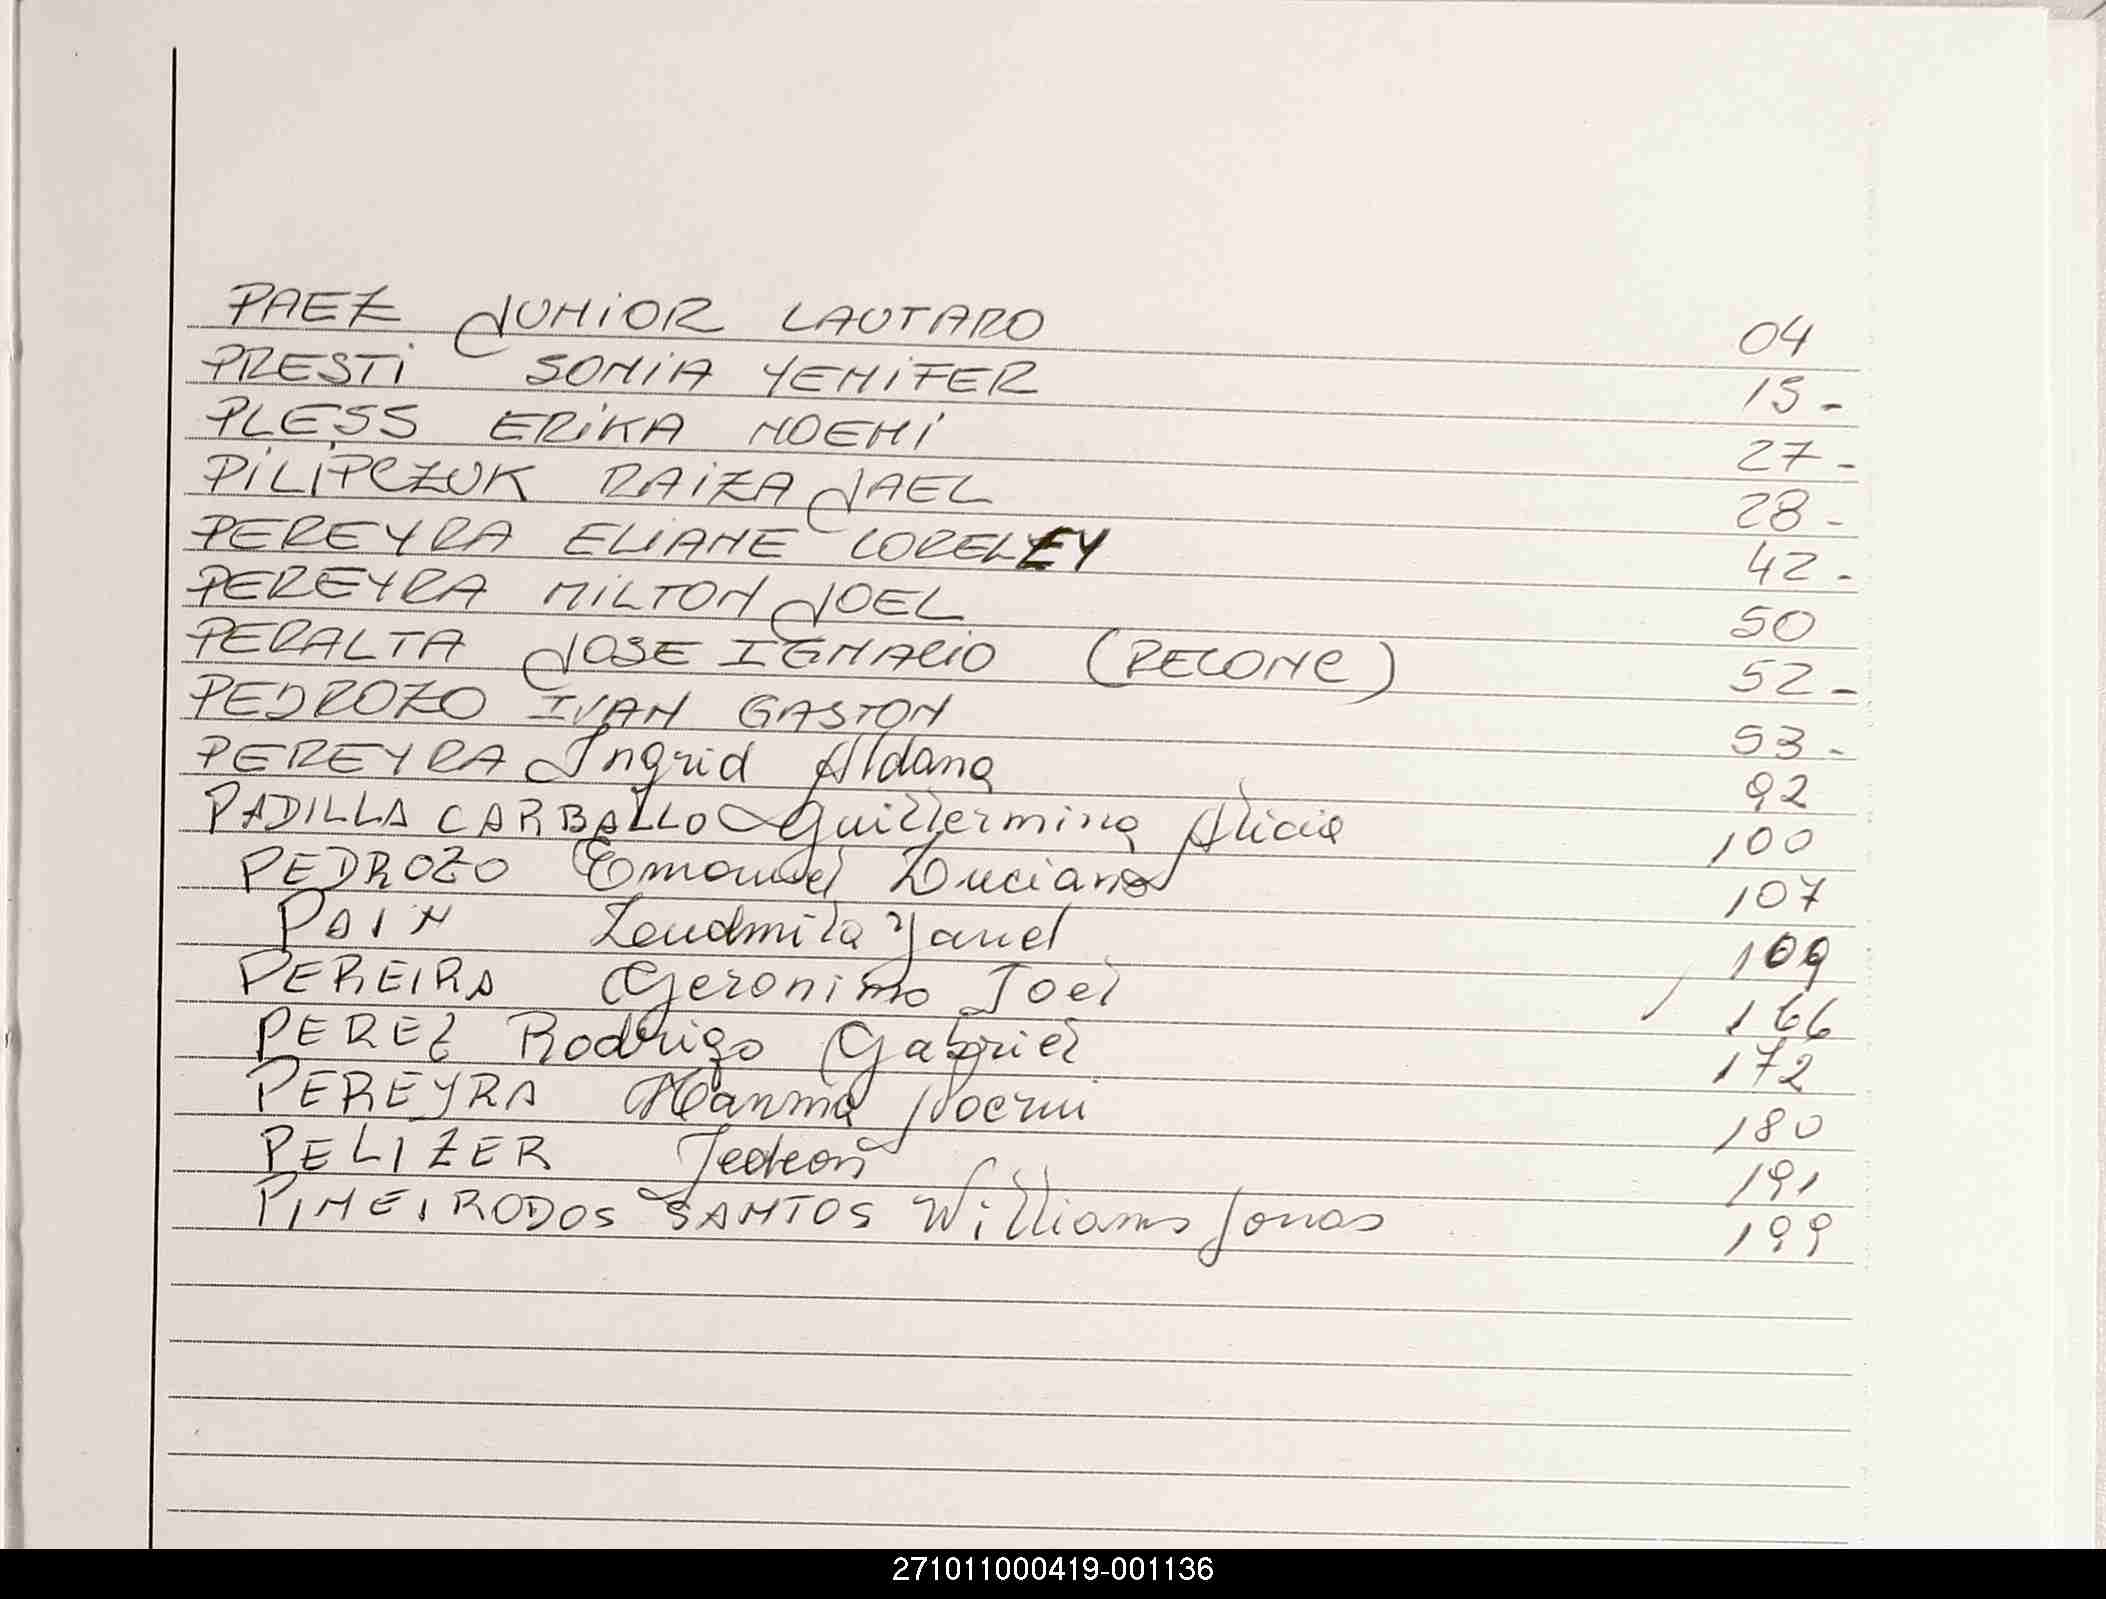 PAEZ JUNIOR LAUTARO 04
PRESTI SONIA YENIFER 15-
PLESS ERIKA NOEMI 27-
PILIPCZUK RAIZA JAEL 28-
PEREYRA ELIANE LORELEY 42-
PEREYRA MILTON JOEL 50
PERALTA JOSE IGNACIO (RECONC) 52-
PEDROZO IVAN GASTON 53-
PEREYRA Ingrid Aldana 92
PADILLA CARBALLO Guillermina Alicia 100
PEDROZO Emanuel Luciano 107
PAIN Ludmila Yanel 109
PEREIRA Geronimo Joel 166
PEREZ Rodrigo Gabriel 172
PEREYRA Noemi 180
PELIZER 191
PINEIRODOS SANTOS Williams Jonas 199
271011000419-001136